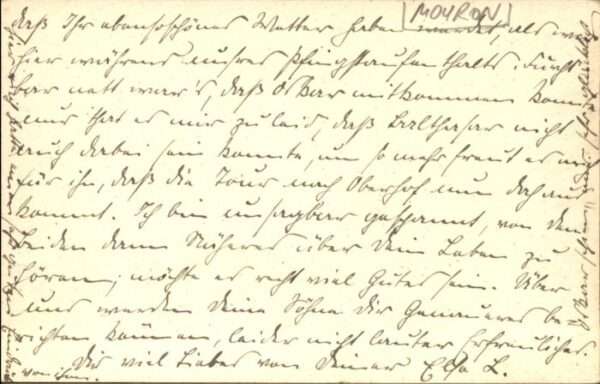 [MOURON]
daß Ihr ebensoschönes Wetter haben werdet, als wir
hier während unsres Pfingstaufenthalts. Furcht-
bar nett war's, daß Oskar mitkommen konnte,
nur that es mir zu leid, daß Balthasar nicht
auch dabei sein konnte, um so mehr freut es mich
für ihn, daß die Tour nach Oberhof nun doch aus-
kommt. Ich bin unsagbar gespannt, von den
Beiden dann Näheres über Dein Leben zu
hören; möchte es recht viel Gutes sein. Über
uns werden Deine Söhne Dir Genaueres be-
richten können, leider nicht lauter Erfreuliches.
Dir viel Liebes von Deiner Elsa L.
von ihm.